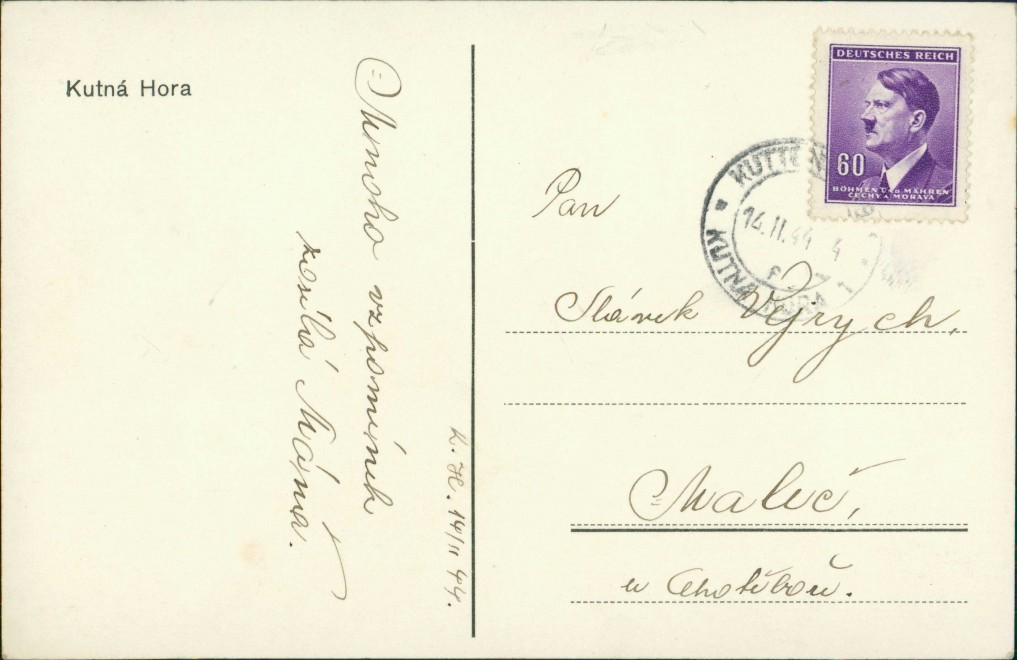 Kutná Hora
Mnoho vzpomínek
posílá Máňa.
K. H. 14/II 44.
DEUTSCHES REICH
60
BÖHMEN UND MÄHREN
ČECHY A MORAVA
KUTTEN
14.II.44 4
KUTNÁ HORA 1
Pan
Slávek Vejrych,
Maleč,
u Chotěboř.